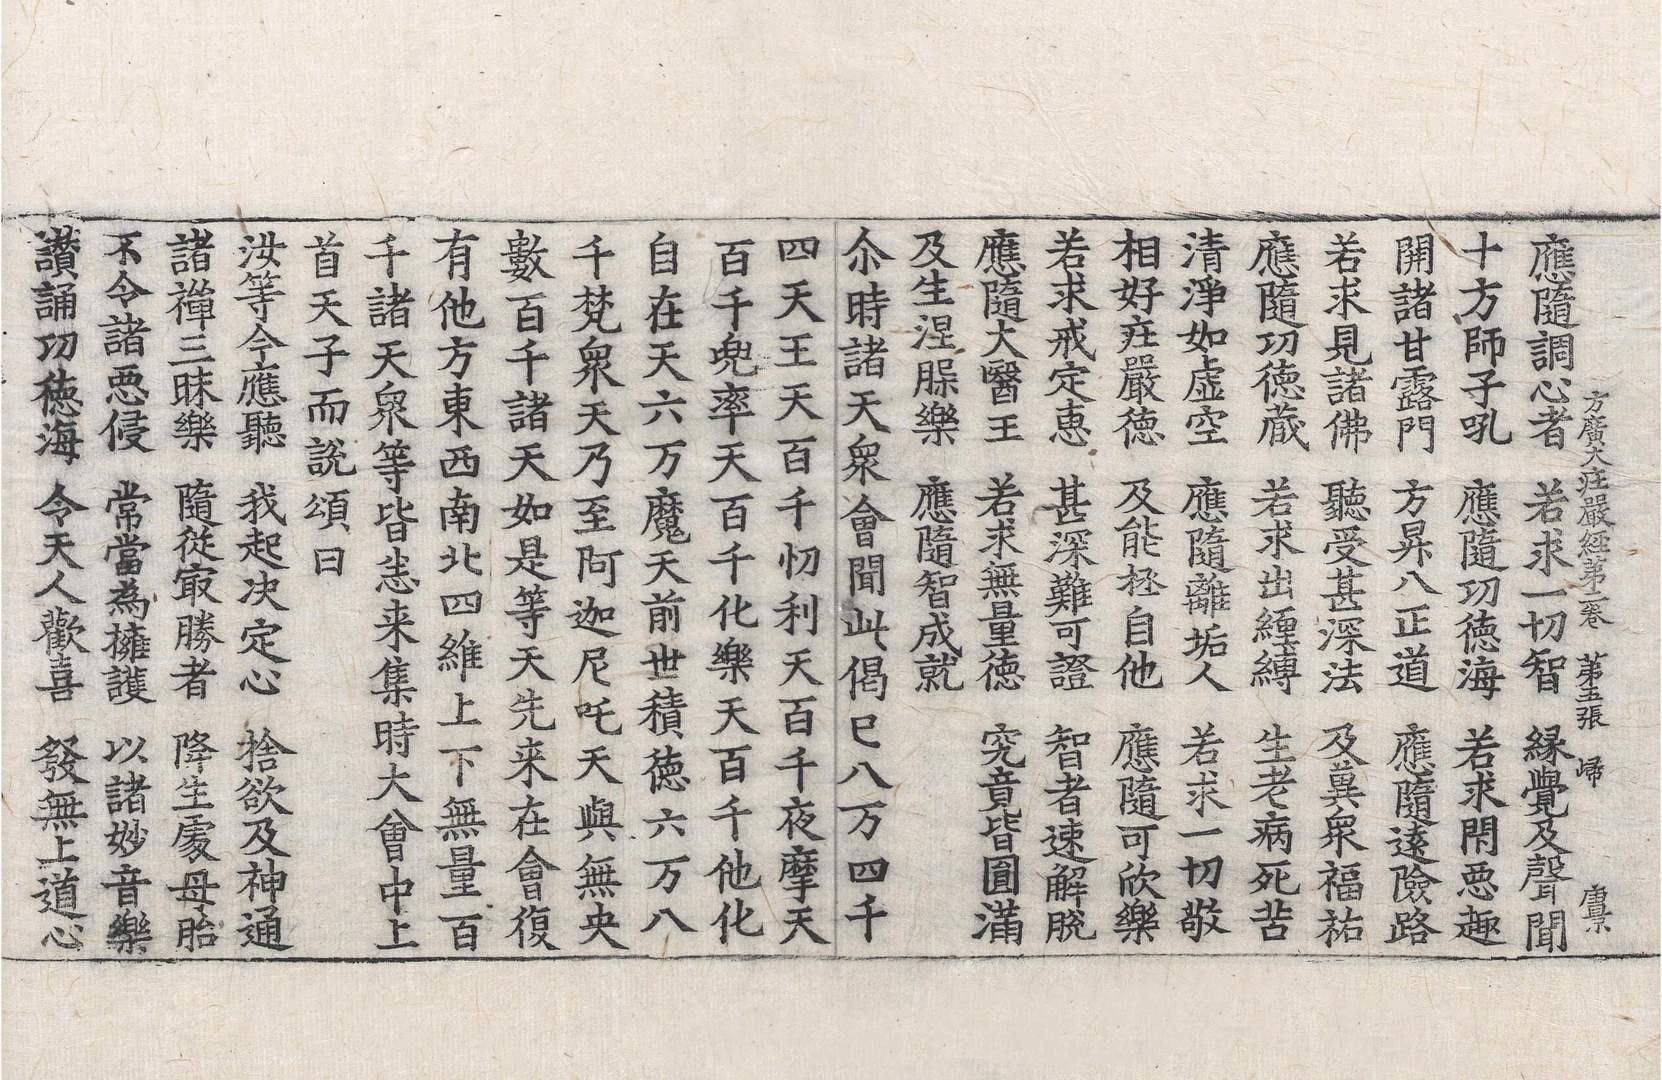 方廣大疘嚴經苐二卷 第五張 㱕 唐景
應隨調心者 若求一切智 緣覺及聲聞
十方師子吼 應隨功徳海 若求閇惡趣
開諸甘露門 方昇八正道 應隨逺險路
若求見諸佛 聽受甚深法 及兾衆福祐
應隨功徳藏 若求出纏縛 生老病死苦
清淨如虚空 應隨離垢人 若求一切敬
相好疘嚴徳 及能拯自他 應隨可欣樂
若求戒定恵 甚深難可證 智者速解脫
應隨大醫王 若求無量徳 究竟皆圎滿
及生涅槃樂 應隨智成就
尒時諸天衆會聞此偈已八万四千
四天王天百千忉利天百千夜摩天
百千兜率天百千化樂天百千他化
自在天六万魔天前世積徳六万八
千梵衆天乃至阿迦尼吒天與無央
數百千諸天如是等天先来在會復
有他方東西南北四維上下無量百
千諸天衆等皆悉来集時大會中上
首天子而說頌曰
汝等今應聽 我起决定心 捨欲及神通
諸禪三昧樂 隨從㝡勝者 降生處母胎
不令諸惡侵 常當為擁護 以諸妙音樂
讃誦功徳海 令天人歡喜 發無上道心